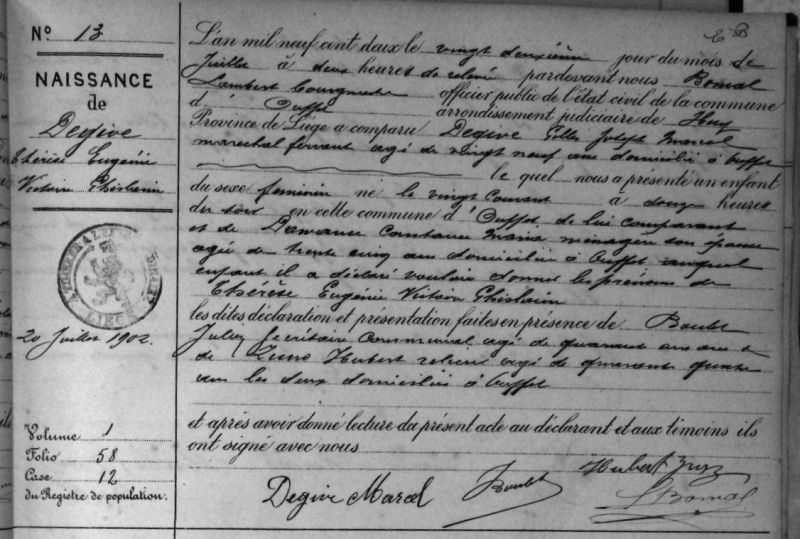 Nº 13
NAISSANCE
de
Degive
Thérèse Eugénie
Victoire Ghislaine
LIÉGE
20 Juillet 1902.
Volume 1
Folio 58
Case 12
du Registre de population.
L'an mil neuf cent deux le vingt deuxième jour du mois de
Juillet à deux heures de relevée pardevant nous Bomal
Lambert officier public de l'état civil de la commune
d' Ouffet arrondissement judiciaire de Huy
Province de Liége a comparu Degive Joseph Marcel
marechal ferrant agé de vingt neuf ans domicilié à Ouffet
le quel nous a présenté un enfant
du sexe feminin né le vingt courant à heures
du soir en cette commune d' Ouffet de lui comparant
et de Constance Maria ménagère son épouse
agée de trente cinq ans domiciliée à Ouffet auquel
enfant il a déclaré vouloir donner les prénoms de
Thérèse Eugénie Victoire Ghislaine
les dites déclaration et présentation faites en présence de Boulet
Jules Secrétaire Communal agé de quarante ans et
de Hubert agé de quarante quatre
ans les deux domiciliés à Ouffet
et après avoir donné lecture du présent acte au déclarant et aux témoins ils
ont signé avec nous
Hubert
Degive Marcel Boulet LBomal